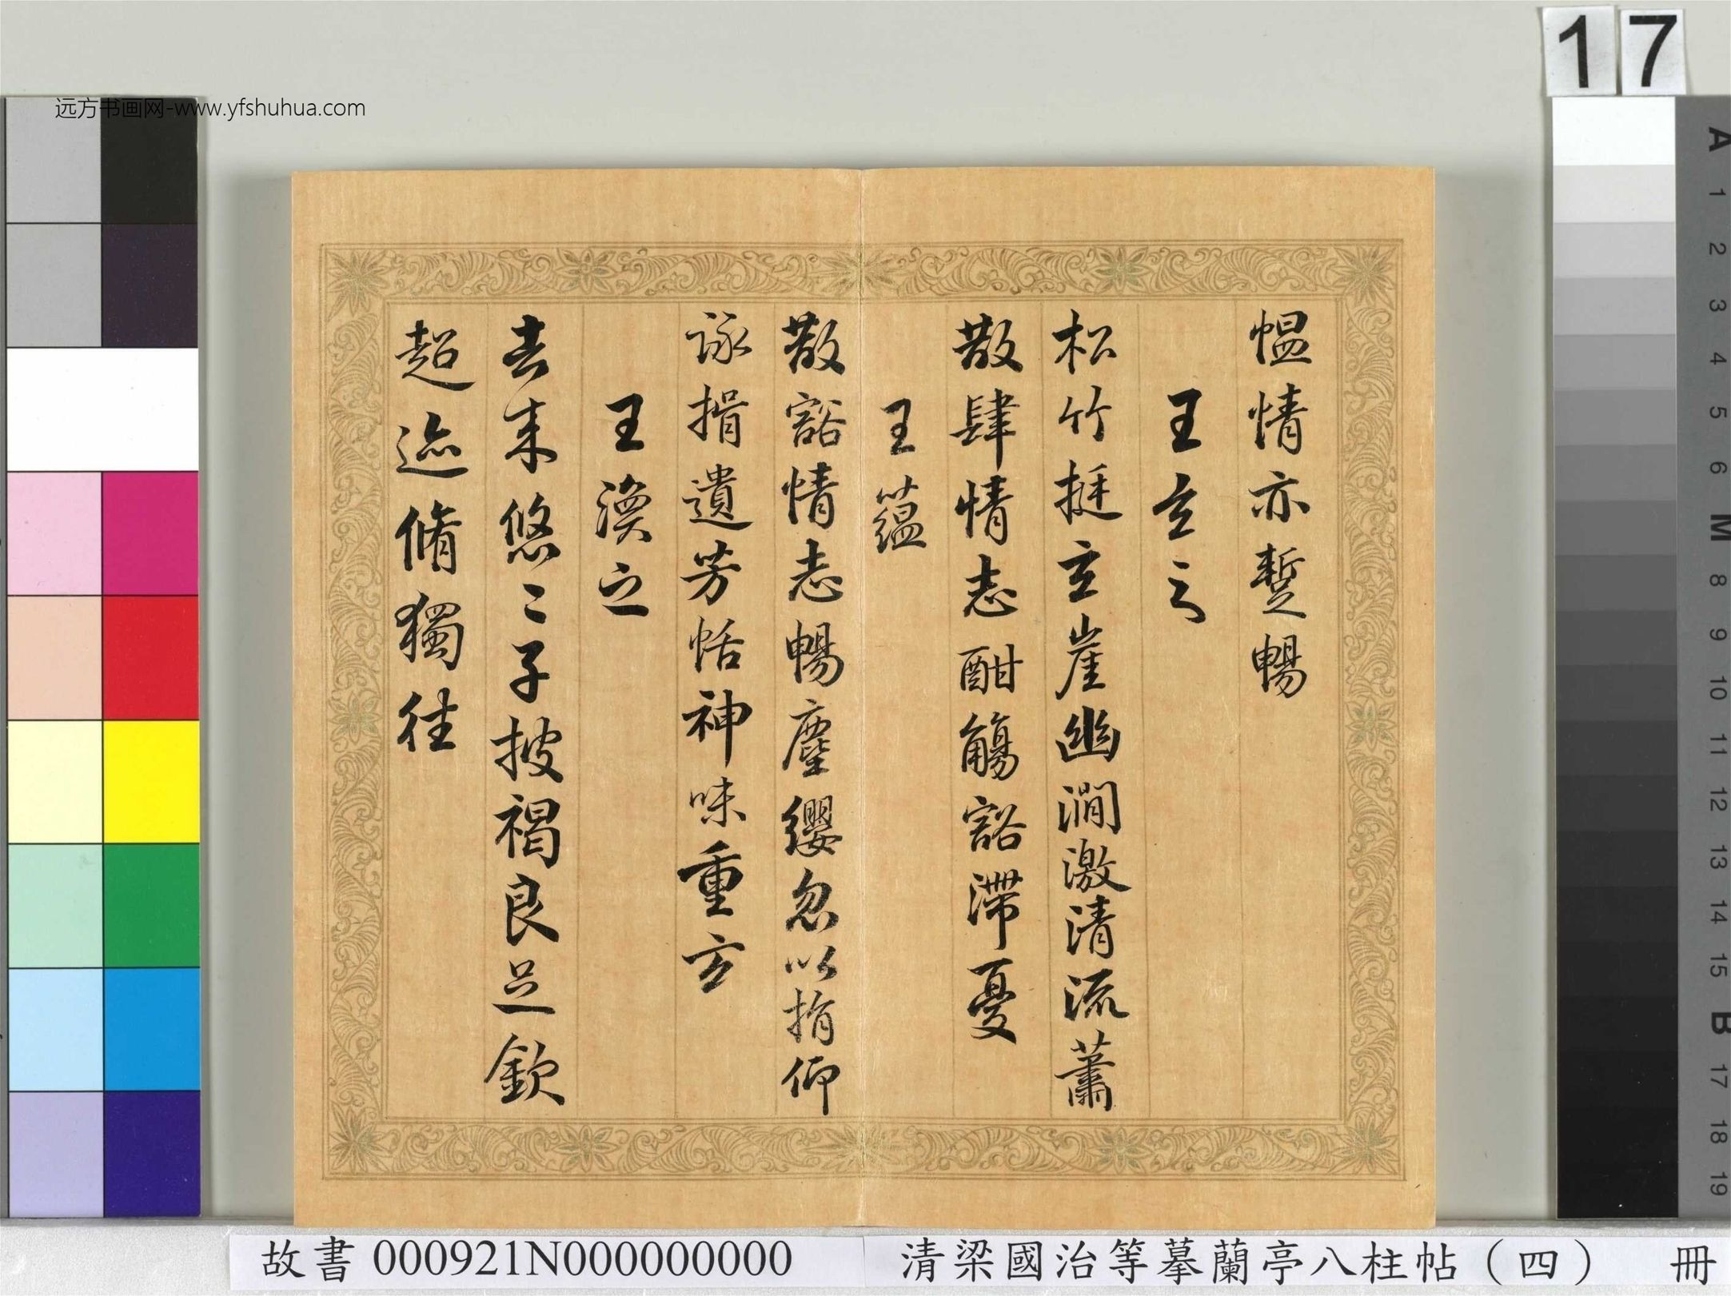 17
远方书画网-www.yfshuhua.com
愠情亦蹔暢
王玄之
松竹挺玄崖幽澗激清流蕭
散肆情志酣觴豁滯憂
王蘊
散豁情志暢塵纓忽以捐仰
詠揖遺芳恬神味重玄
王渙之
去来悠〻子披褐良足欽
超迹脩獨往
故書 000921N000000000
清梁國治等摹蘭亭八柱帖（四） 冊
A
1
2
3
4
5
6
M
8
9
10
11
12
13
14
15
B
17
18
19